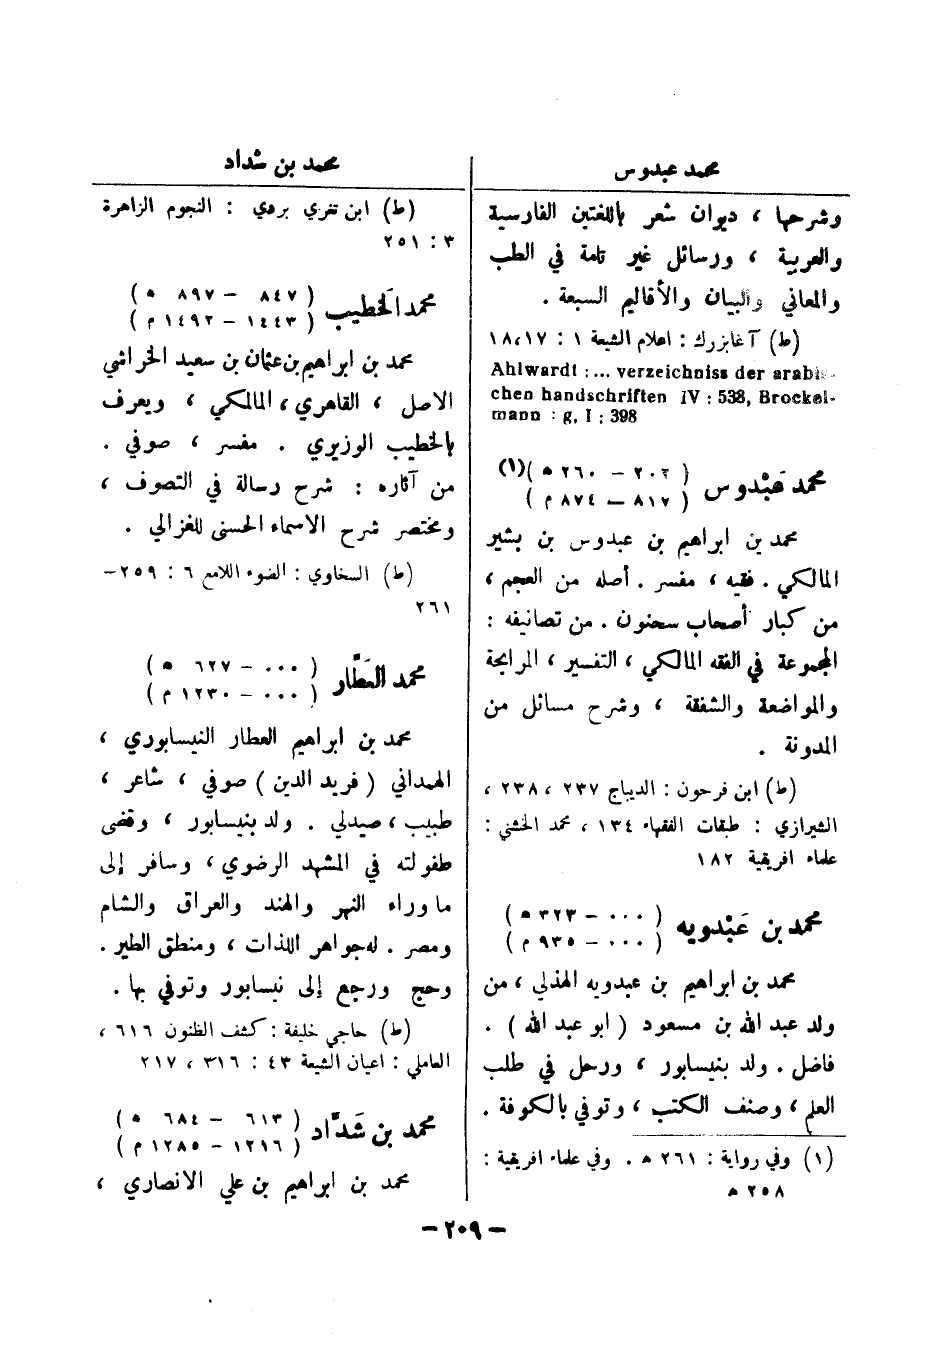 محمد عبدوس
وشرحها ، ديوان شعر باللغتين الفارسية
والعربية ، ورسائل غير تامة في الطب
والمعاني والبيان والأقاليم السبعة .
(ط) آغابزرك : اعلام الشيعة ١ : ١٧،١٨
Ahlwardt : ... verzeichniss der arabis-
chen handschriften IV : 538, Brockel-
mann : g, I : 398
محمد عَبْدوس ( ٢٠٢ – ٢٦٠ ه )(١)
( ٨١٧ – ٨٧٤ م )
محمد بن ابراهيم بن عبدوس بن بشير
المالكي . فقيه ، مفسر . أصله من العجم ،
من كبار أصحاب سحنون . من تصانيفه :
المجموعة في الفقه المالكي ، التفسير ، المرابحة
والمواضعة والشفقة ، وشرح مسائل من
المدونة .
(ط) ابن فرحون : الديباج ٢٣٧ ، ٢٣٨ ،
الشيرازي : طبقات الفقهاء ١٣٤ ، محمد الخشني :
علماء افريقية ١٨٢
محمد بن عَبْدويه ( ٠٠٠ – ٣٢٣ ه )
( ٠٠٠ – ٩٣٥ م )
محمد بن ابراهيم بن عبدويه الهذلي ، من
ولد عبد الله بن مسعود ( ابو عبد الله ) .
فاضل . ولد بنيسابور ، ورحل في طلب
العلم ، وصنف الكتب ، وتوفي بالكوفة .
(١) وفي رواية : ٢٦١ ه . وفي علماء افريقية :
٢٥٨ ه
محمد بن شداد
(ط) ابن تغري بردي : النجوم الزاهرة
٣ : ٢٥١
محمد الخطيب ( ٨٤٧ – ٨٩٧ ه )
( ١٤٤٣ – ١٤٩٢ م )
محمد بن ابراهيم بن عثمان بن سعيد الخراشي
الاصل ، القاهري ، المالكي ، ويعرف
بالخطيب الوزيري . مفسر ، صوفي .
من آثاره : شرح رسالة في التصوف ،
ومختصر شرح الاسماء الحسنى للغزالي .
(ط) السخاوي : الضوء اللامع ٦ : ٢٥٩–
٢٦١
محمد العَطَّار ( ٠٠٠ – ٦٢٧ ه )
( ٠٠٠ – ١٢٣٠ م )
محمد بن ابراهيم العطار النيسابوري ،
الهمداني ( فريد الدين ) صوفي ، شاعر ،
طبيب ، صيدلي . ولد بنيسابور ، وقضى
طفولته في المشهد الرضوي ، وسافر إلى
ما وراء النهر والهند والعراق والشام
ومصر . له جواهر اللذات ، ومنطق الطير .
وحج ورجع إلى نيسابور وتوفي بها .
(ط) حاجي خليفة : كشف الظنون ٦١٦ ،
العاملي : اعيان الشيعة ٤٣ : ٣١٦ ، ٢١٧
محمد بن شَدَّاد ( ٦١٣ – ٦٨٤ ه )
( ١٢١٦ – ١٢٨٥ م )
محمد بن ابراهيم بن علي الانصاري ،
– ٢٠٩ –